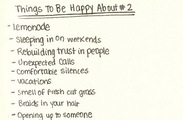 Things To Be Happy About #2
- lemonade
- Sleeping in on weekends
- Rebuilding trust in people
- Unexpected Calls
- Comfortable silences
- vacations
- Smell of fresh cut grass
- Braids in your hair
- Opening up to someone